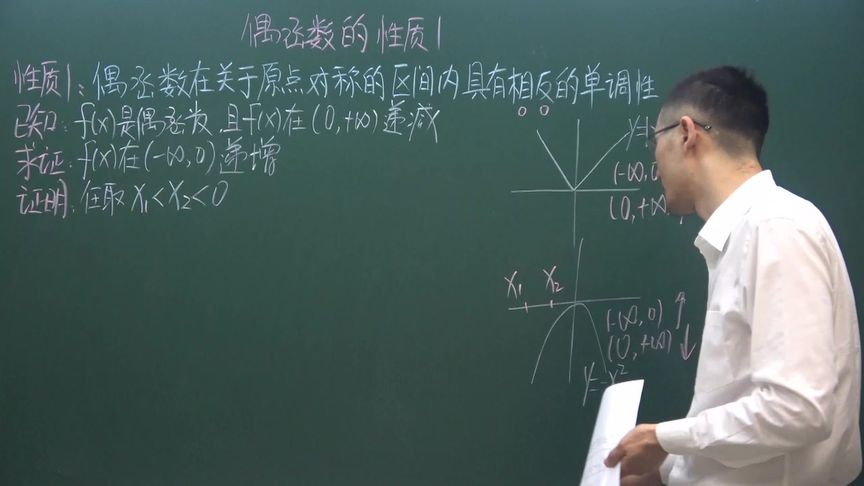 偶函数的性质1
性质1:偶函数在关于原点对称的区间内具有相反的单调性
已知:f(x)是偶函数,且f(x)在(0,+∞)递减
求证:f(x)在(-∞,0)递增
证明:任取 x₁<x₂<0
y=
(-∞,0
(0,+∞)
x₁ x₂
(-∞,0) ↑
(0,+∞) ↓
y=-x²